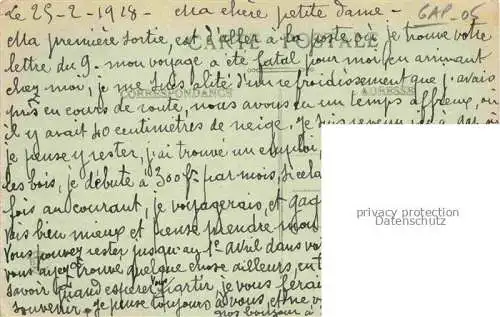 Le 25-2-1918- Ma chère petite dame - GAP-05
Ma première sortie, est d'aller à la poste où je trouve votre
CARTE POSTALE
lettre du 9- mon voyage a été fatal pour moi en arrivant
chez moi, je me suis alité d'un refroidissement que j'avais
CORRESPONDANCE ADRESSE
pris en cours de route, nous avons eu un temps affreux, où
il y avait 40 centimètres de neige. Je suis revenu
je pense y rester, j'ai trouvé un emploi
les bois, je débute à 300f par mois, si cela
fois au courant, je voyagerais et
bien mieux et pense prendre
Vous pouvez rester jusqu'au 1er avril dans
vous ayez trouvé quelque chose ailleurs, en
savoir quand espérez vous partir, je vous ferai
souvenir. Je pense toujours à vous
nos bonjour à
privacy protection
Datenschutz